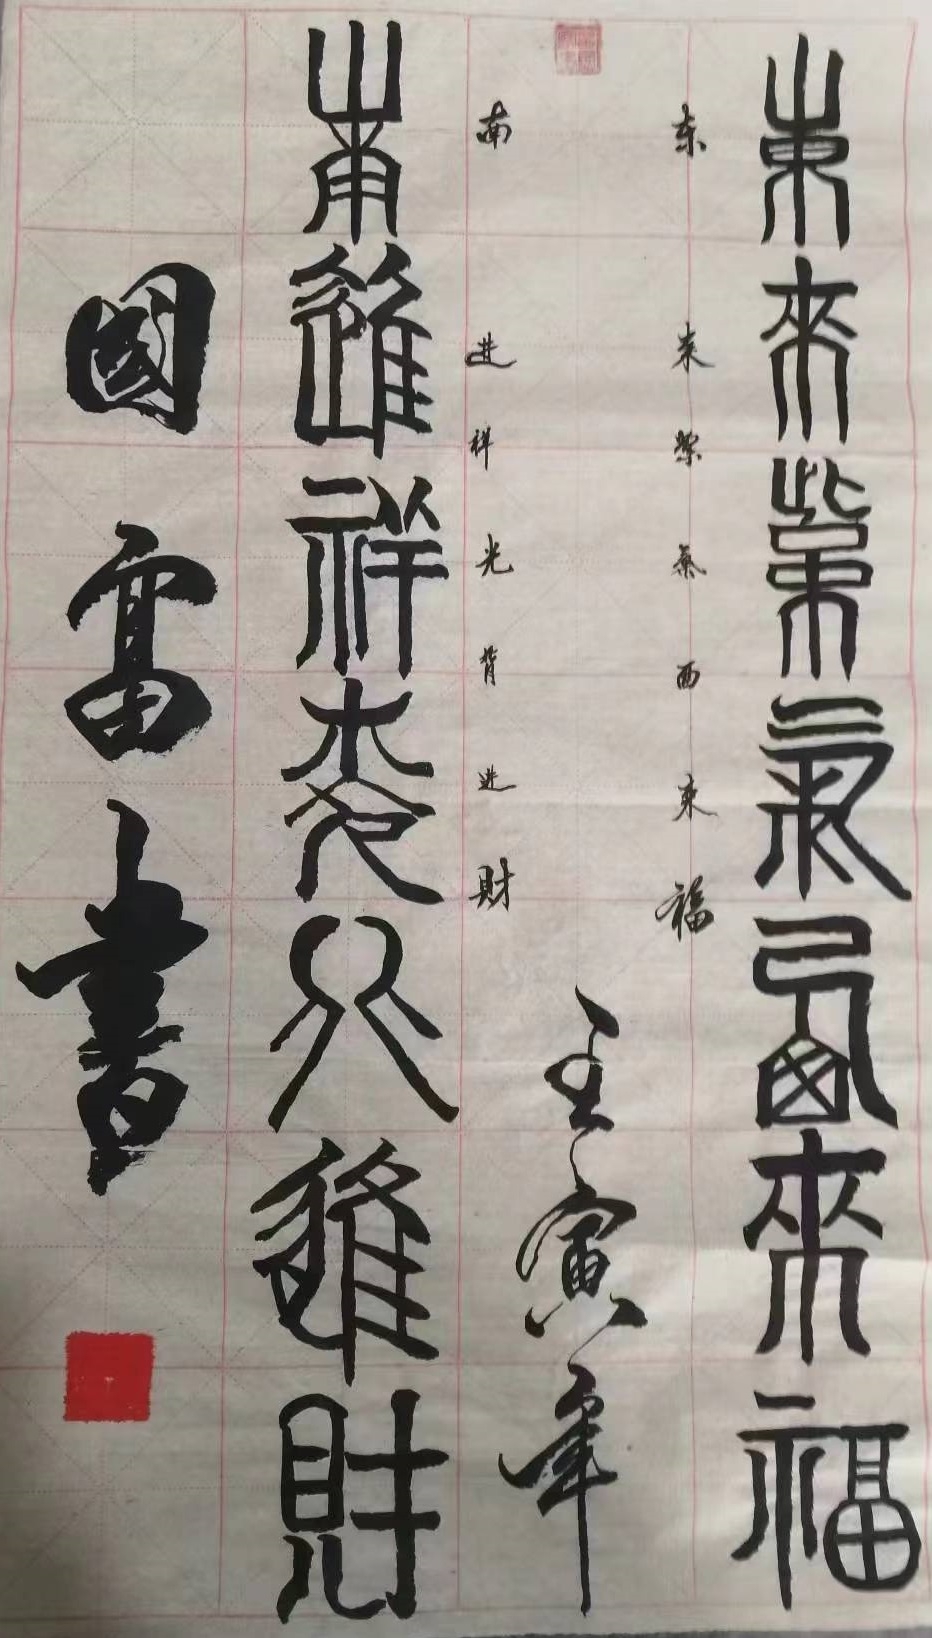 東來紫氣西來福
东来紫氣西来福
壬寅年
南进祥光背进財
南進祥光北進財
國富書